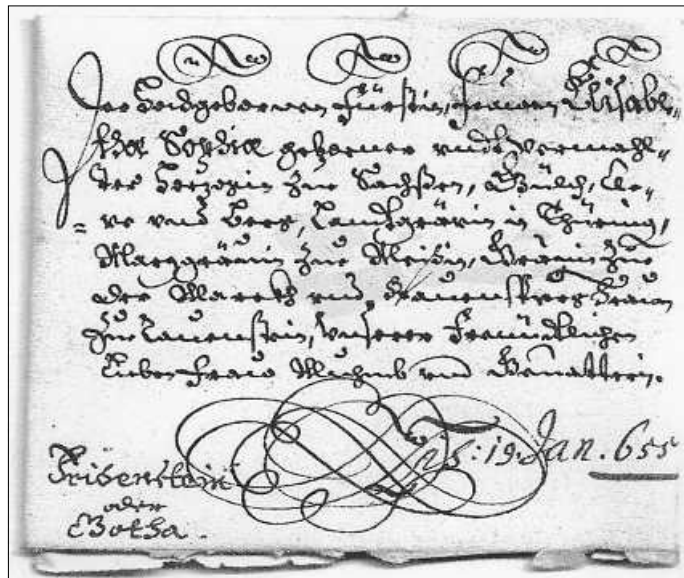 Der Hochgebornen Fürstin, Frauen Elisabe,,
tha Sophia geborner undt Vermähl,,
ter Hertzogin zue Sachßen, Gülch, Cle,,
ve und Berg, Landtgrävin in Thüring,
Marggrävin zue Meißen, Grävin zue
der Marckh und Ravenspurg Frauen
zue Ravenstein, Unserer Freundtlichen
Lieben Frau Muhmb und Gevatterin.
19. Jan. 655
Fridenstein
oder
Gotha.